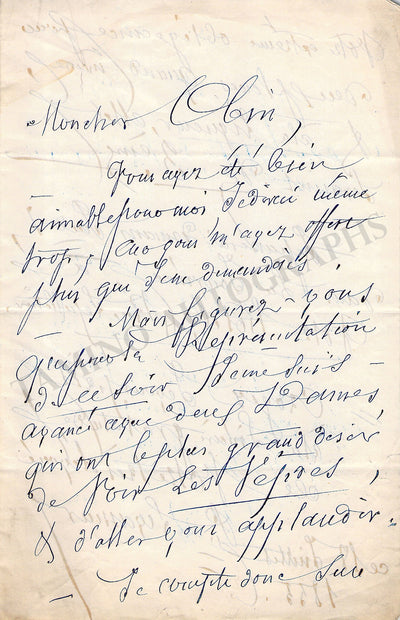 Mon cher Obin,
Vous avez été bien
aimable pour moi Je dirai même
trop, car vous m'avez offert
plus que Je ne demandais.
Mais figurez-vous
qu'après la Représentation
de ce soir Je me suis
avancé avec deux Dames,
qui ont le plus grand désir
de Voir Les Vêpres,
& d'aller vous applaudir.
Je compte donc sur
TAMINO AUTOGRAPHS